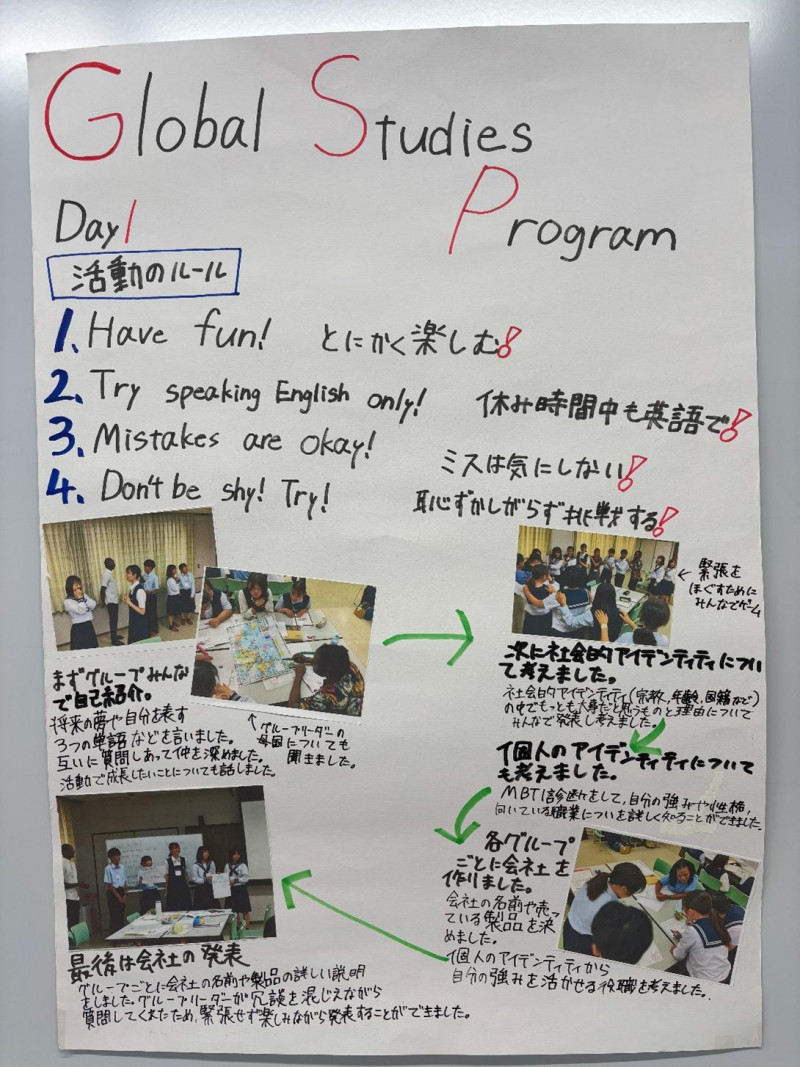 Global Studies
Program
Day1
活動のルール
1. Have fun! とにかく楽しむ!
2. Try speaking English only! 休み時間中も英語で!
3. Mistakes are okay! ミスは気にしない!
4. Don't be shy! Try! 恥ずかしがらず挑戦する!
まずグループみんな
で自己紹介。
将来の夢や自分を表す
3つの単語などを言いました。
互いに質問しあって仲を深めました。
活動で成長したいことについても話しました。
グループリーダーの
母国についても
聞きました。
緊張を
ほぐすために
みんなでゲーム
次に社会的アイデンティティについ
て考えました。
社会的アイデンティティ(宗教,年齢,国籍など)
の中でもっとも大事だと思うものと理由について
みんなで発表し考えました。
個人のアイデンティティについて
も考えました。
MBTI診断をして,自分の強みや性格,
向いている職業についを詳しく知ることができました。
各グループ
ごとに会社を
作りました。
会社の名前や売っ
ている製品を決
めました。
個人のアイデンティティから
自分の強みを活かせる役職を考えました。
最後は会社の発表
グループごとに会社の名前や製品の詳しい説明
をしました。グループリーダーが冗談を混じえながら
質問してくれたため,緊張せず楽しみながら発表することができました。